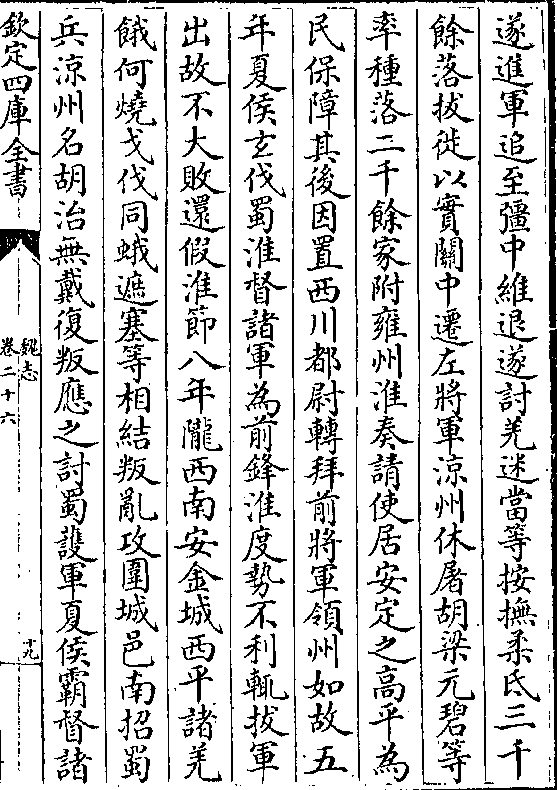 遂進軍追至彊中維退遂討羌迷當等按撫柔氐三千
餘落拔徙以實關中遷左將軍涼州休屠胡梁元碧等
率種落二千餘家附雍州淮奏請使居安定之高平為
民保障其後因置西川都尉轉拜前將軍領州如故五
年夏侯玄伐蜀淮督諸軍為前鋒淮度勢不利輒拔軍
出故不大敗還假淮節八年隴西南安金城西平諸羌
餓何燒戈伐同蛾遮塞等相結叛亂攻圍城邑南招蜀
兵涼州名胡治無戴復叛應之討蜀護軍夏侯霸督諸
欽定四庫全書
魏志
卷二十六
十九